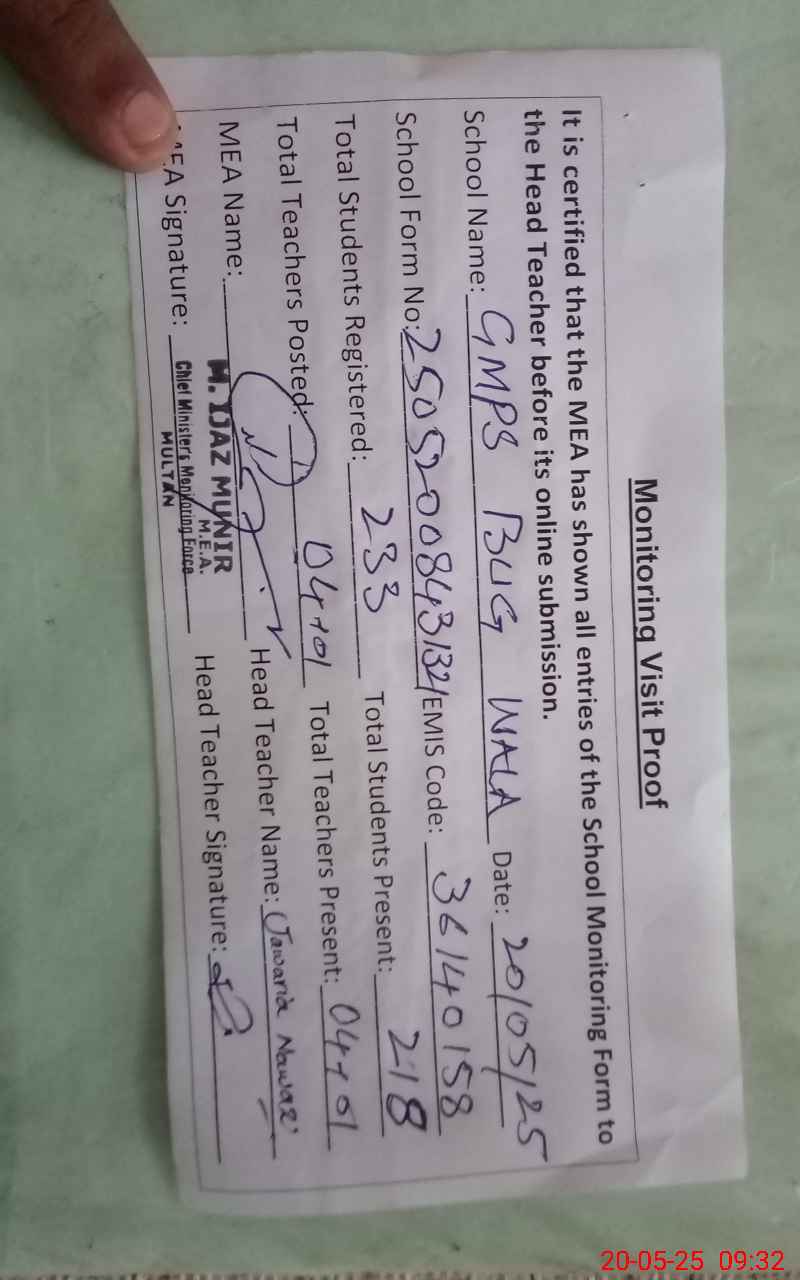 Monitoring Visit Proof
It is certified that the MEA has shown all entries of the School Monitoring Form to
the Head Teacher before its online submission.
School Name: GMPS BUG WALA Date: 20/05/25
School Form No: 25052008431321 EMIS Code: 36140158
Total Students Registered: 233 Total Students Present: 218
Total Teachers Posted: 04+01 Total Teachers Present: 04+01
MEA Name: M. IJAZ MUNIR Head Teacher Name: Jawaria Nawaz
M.E.A.
MEA Signature: Chief Ministers Monitoring Force Head Teacher Signature:
MULTAN
20-05-25 09:32